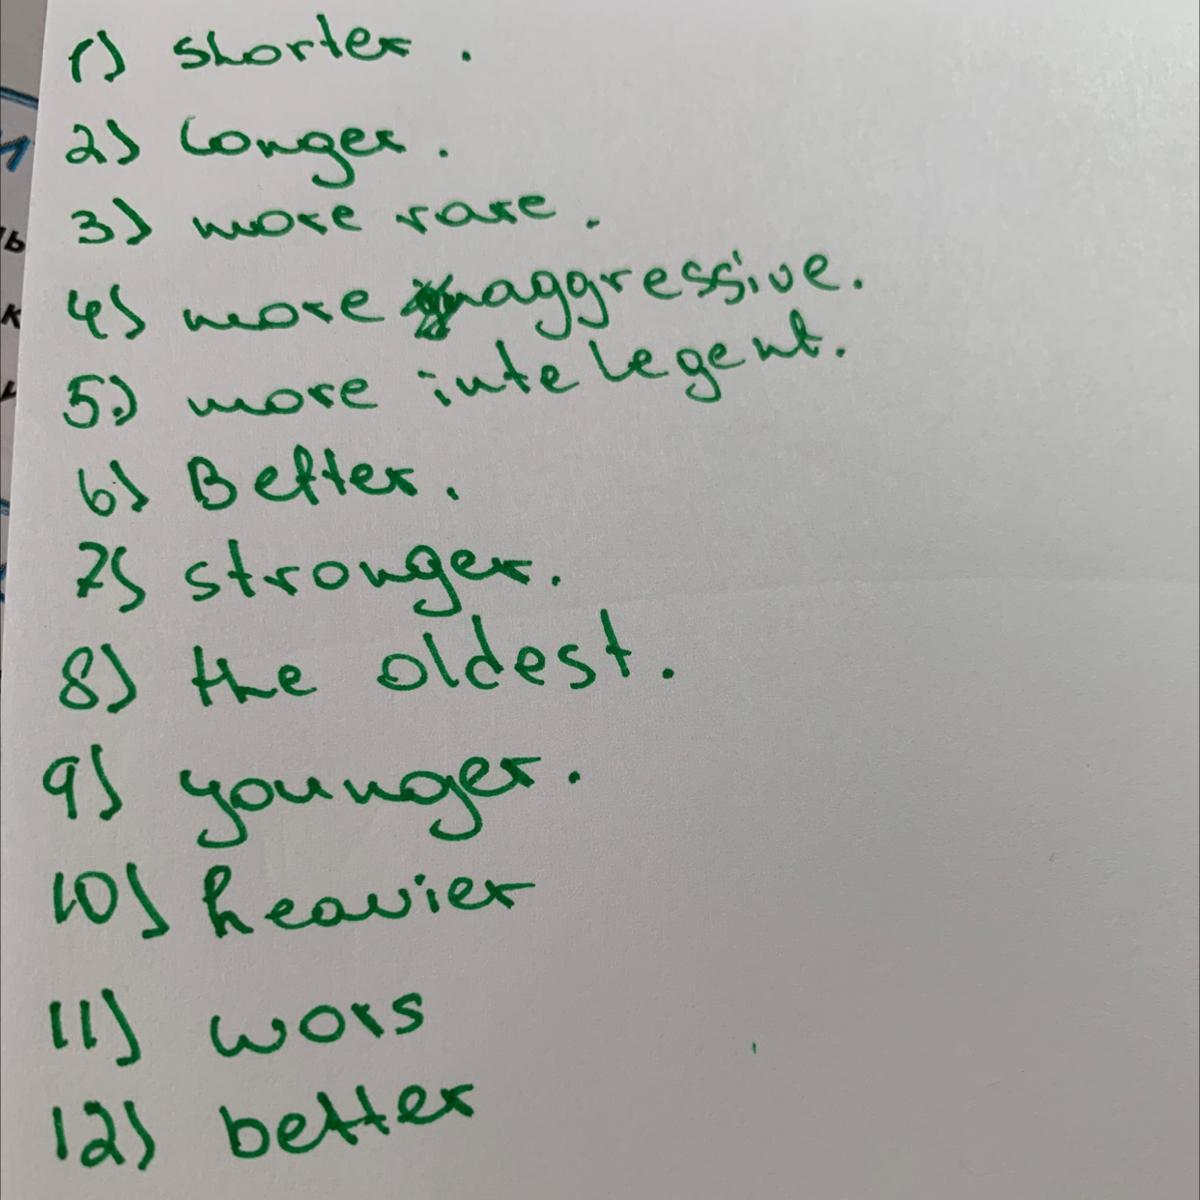 1) shorter.
2) longer.
3) more rare.
4) more aggressive.
5) more intelegent.
6) Better.
7) stronger.
8) the oldest.
9) younger.
10) heavier
11) wors
12) better